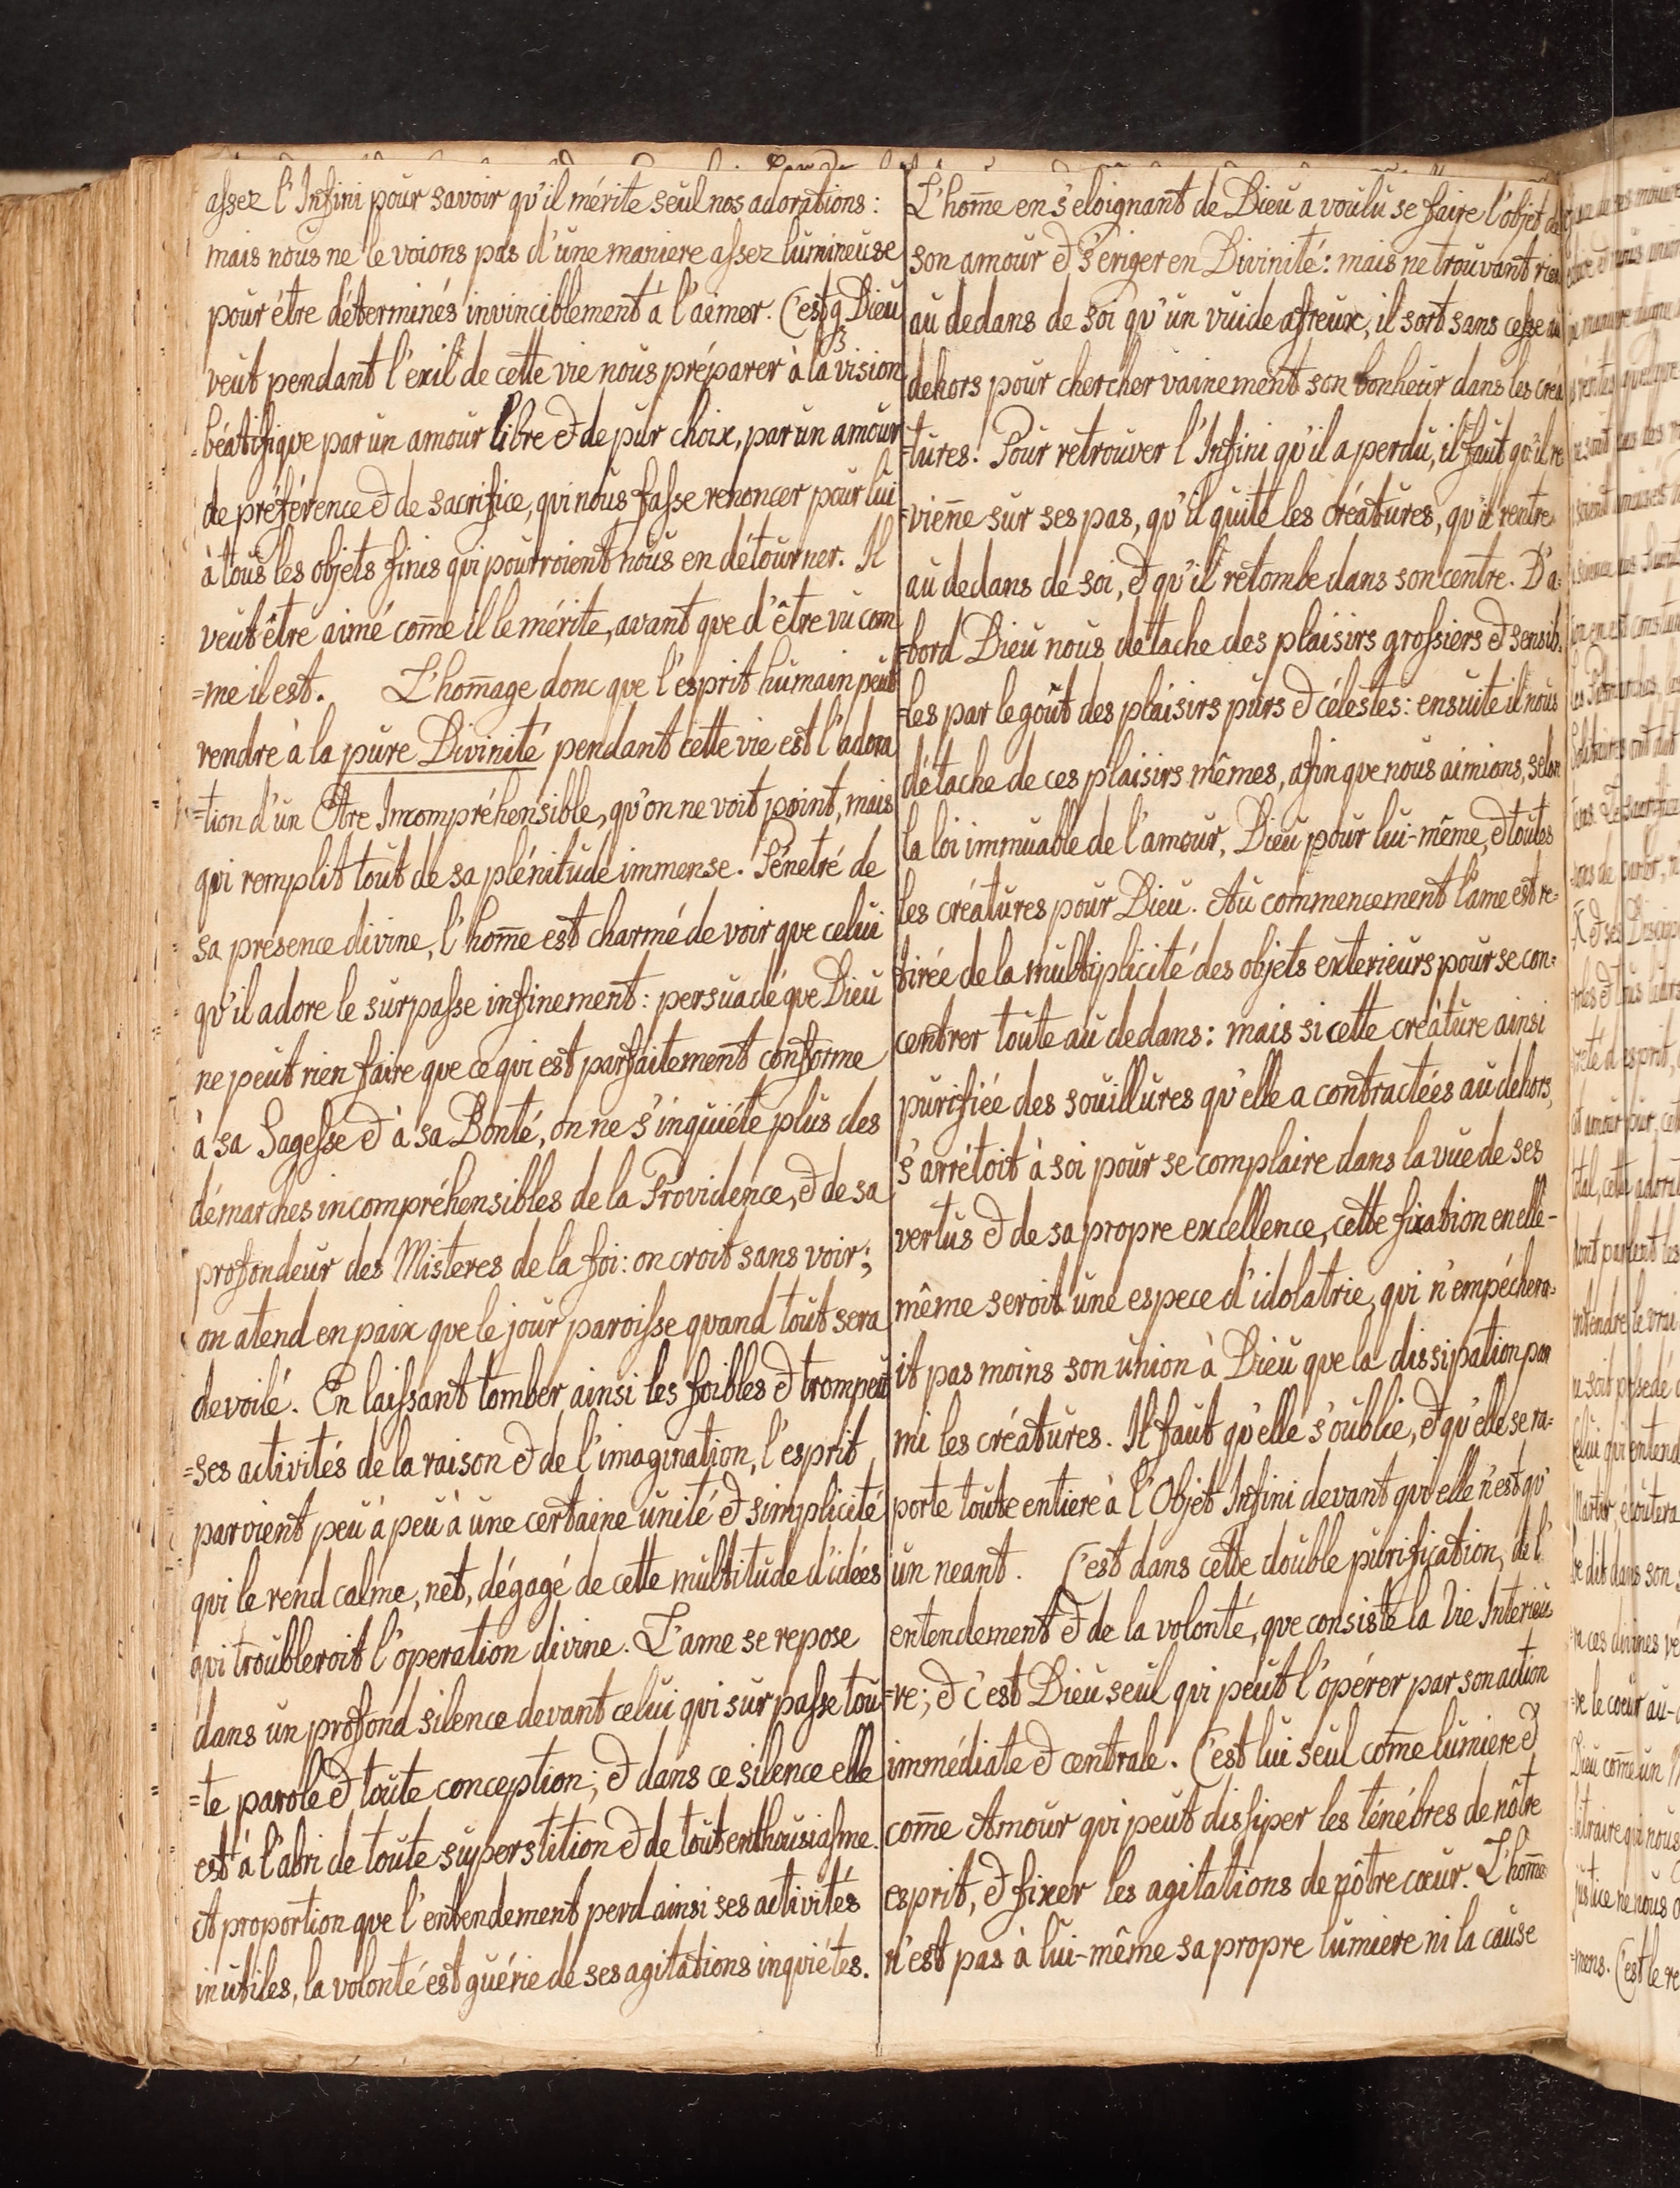 assez l'Infini pour savoir qu'il mérite seul nos adorations:
mais nous ne le voions pas d'une maniere assez lumineuse
pour être déterminés invinciblement à l'aimer. C'est q Dieu
veut pendant l'exil de cette vie nous préparer à la vision
=béatifique par un amour libre & de pur choix, par un amour
de préférence & de sacrifice, qui nous fasse renoncer pour lui
à tous les objets finis qui pourroient nous en détourner. Il
veut être aimé com̄e il le mérite, avant que d'être vu com
=me il est. L'hom̄age donc que l'esprit humain peut
rendre à la pure Divinité pendant cette vie est l'adora
=tion d'un Être Incompréhensible, qu'on ne voit point, mais
qui remplit tout de sa plénitude immense. Pénetré de
sa présence divine, l'hom̄e est charmé de voir que celui
qu'il adore le surpasse infinement: persuadé que Dieu
ne peut rien faire que ce qui est parfaitement conforme
à sa Sagesse & à sa Bonté, on ne s'inquiéte plus des
démarches incompréhensibles de la Providence, & de sa
profondeur des Misteres de la foi: on croit sans voir;
on atend en paix que le jour paroisse quand tout sera
devoilé. En laissant tomber ainsi les foibles & trompeu
=ses activités de la raison & de l'imagination, l'esprit
parvient peu à peu à une certaine unité & simplicité
qui le rend calme, net, dégagé de cette multitude d'idées
qui troubleroit l'operation divine. L'ame se repose
dans un profond silence devant celui qui surpasse tou
=te parole & toute conception; & dans ce silence elle
est à l'abri de toute superstition & de tout enthousiasme.
A proportion que l'entendement perd ainsi ses activités
inutiles, la volonté est guérie de ses agitations inquiétes.
L'hom̄e en s'eloignant de Dieu a voulu se faire l'objet de
son amour & s'ériger en Divinité: mais ne trouvant rien
au dedans de soi qu'un vuide afreux, il sort sans cesse au
dehors pour chercher vainement son bonheur dans les créa
=tures. Pour retrouver l'Infini qu'il a perdu, il faut qu'il re
=vien̄e sur ses pas, qu'il quite les créatures, qu'il rentre
au dedans de soi, & qu'il retombe dans son centre. D'a=
=bord Dieu nous détache des plaisirs grossiers & sensib.
=les par le goût des plaisirs purs & célestes: ensuite il nous
détache de ces plaisirs mêmes, afin que nous aimions, selon
la loi immuable de l'amour, Dieu pour lui-même, & toutes
les créatures pour Dieu. Au commencement l'ame est re=
tirée de la multiplicité des objets exterieurs pour se con=
centrer toute au dedans: mais si cette créature ainsi
purifiée des souillures qu'elle a contractées au dehors,
s'arrétoit à soi pour se complaire dans la vue de ses
vertus & de sa propre excellence, cette fixation en elle-
même seroit une espece d'idolatrie, qui n'empéchera=
it pas moins son union à Dieu que la dissipation par
mi les créatures. Il faut qu'elle s'oublie, & qu'elle se ra=
porte toute entiere à l'Objet Infini devant qui elle n'est qu'
un neant. C'est dans cette double purification, de l'
entendement & de la volonté, que consiste la Vie Interieu
=re; & c'est Dieu seul qui peut l'opérer par son action
immédiate & centrale. C'est lui seul com̄e lumiere &
com̄e Amour qui peut dissiper les ténébres de nôtre
esprit, & fixer les agitations de nôtre cœur. L'hom̄e
n'est pas à lui-même sa propre lumiere ni la cause